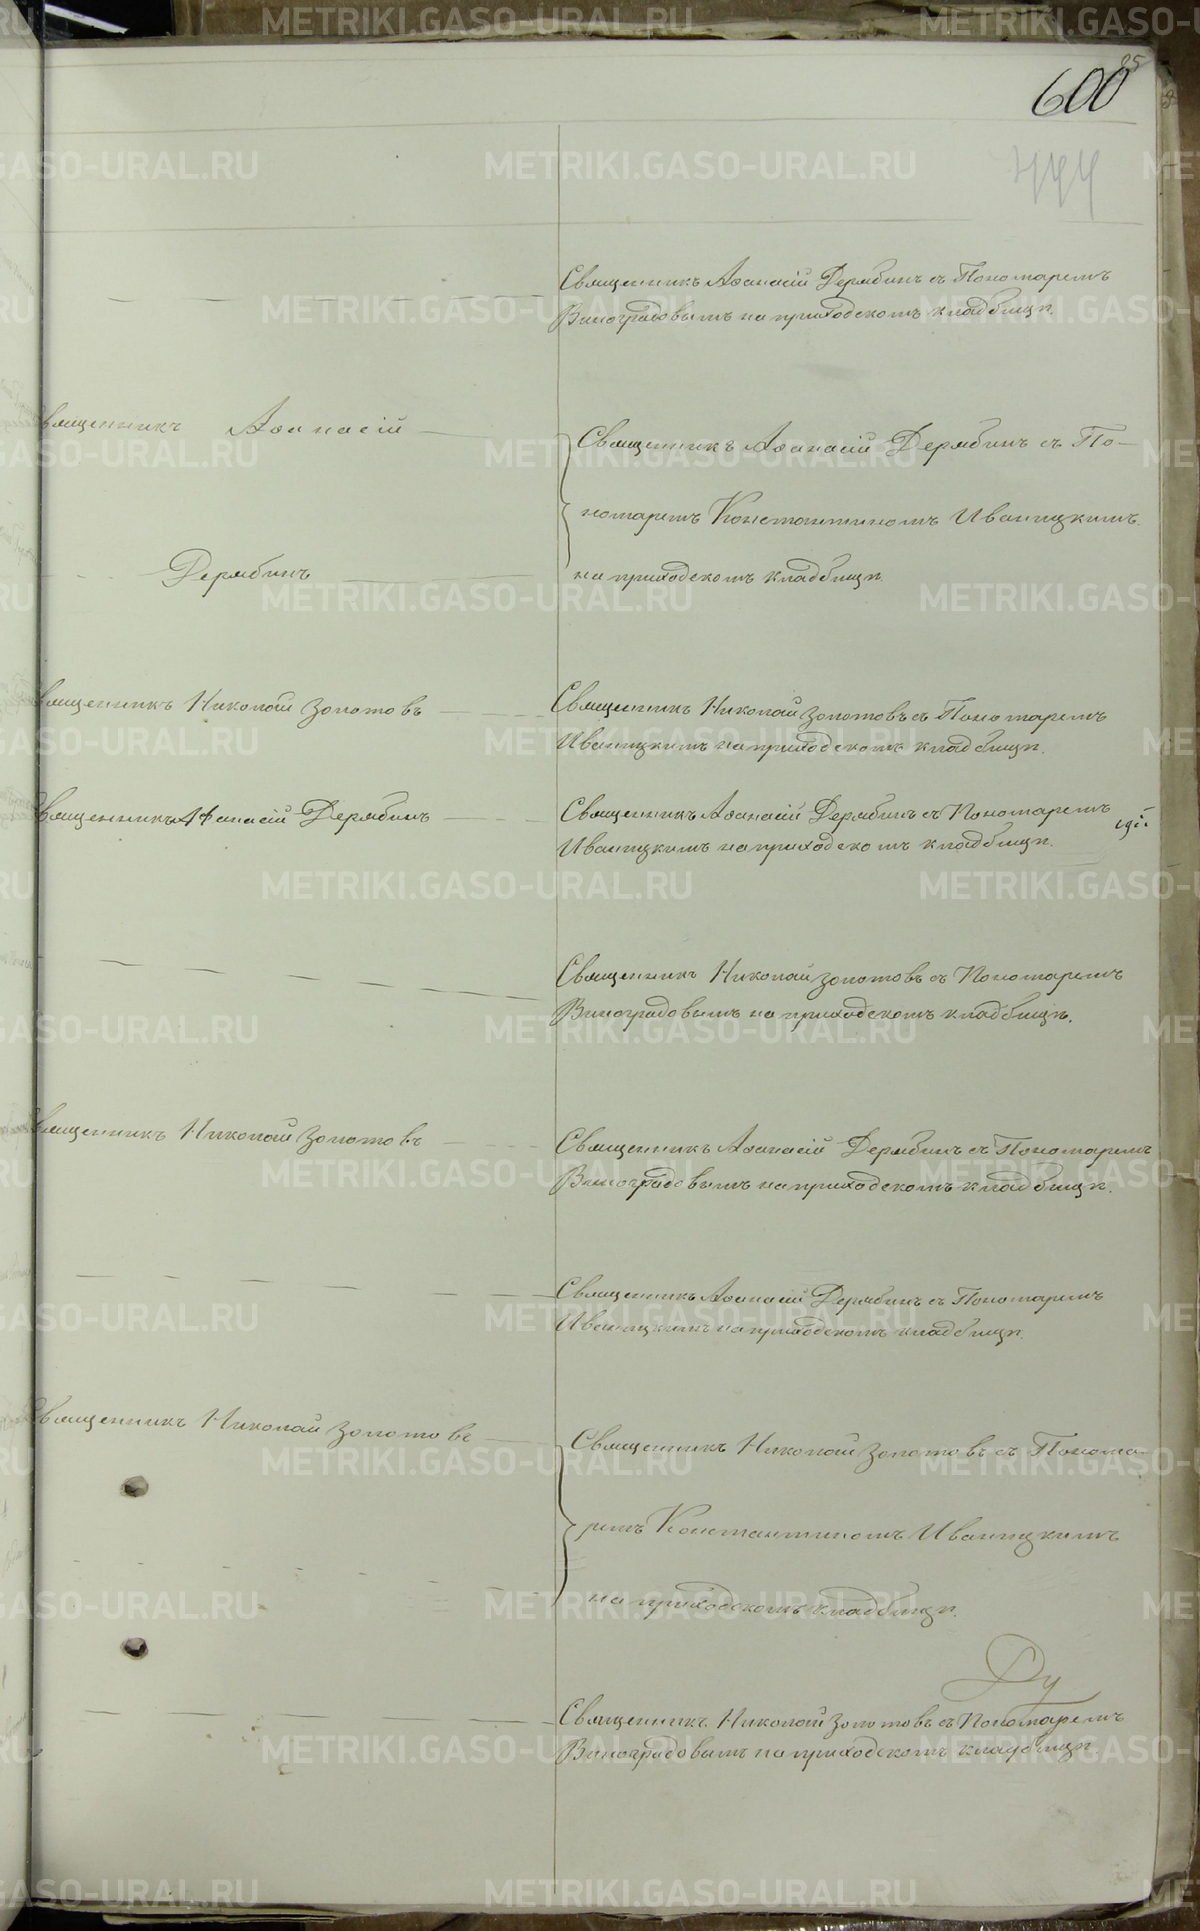 600
444
Священникъ Аѳанасій Дерябинъ съ Пономаремъ
Виноградовымъ на приходскомъ кладбищѣ.
Священникъ Аѳанасій
Дерябинъ
Священникъ Аѳанасій Дерябинъ съ По-
номаремъ Константиномъ Иваницкимъ
на приходскомъ кладбищѣ.
Священникъ Николай Золотовъ
Священникъ Николай Золотовъ съ Пономаремъ
Иваницкимъ на приходскомъ кладбищѣ.
Священникъ Афанасій Дерябинъ
Священникъ Аѳанасій Дерябинъ съ Пономаремъ
Иваницкимъ на приходскомъ кладбищѣ.
Священникъ Николай Золотовъ съ Пономаремъ
Виноградовымъ на приходскомъ кладбищѣ.
Священникъ Николай Золотовъ
Священникъ Аѳанасій Дерябинъ съ Пономаремъ
Виноградовымъ на приходскомъ кладбищѣ.
Священникъ Аѳанасій Дерябинъ съ Пономаремъ
Иваницкимъ на приходскомъ кладбищѣ.
Священникъ Николай Золотовъ
Священникъ Николай Золотовъ съ Понома-
ремъ Константиномъ Иваницкимъ
на приходскомъ кладбищѣ.
Ду
Священникъ Николай Золотовъ съ Пономаремъ
Виноградовымъ на приходскомъ кладбищѣ.
METRIKI.GASO-URAL.RU